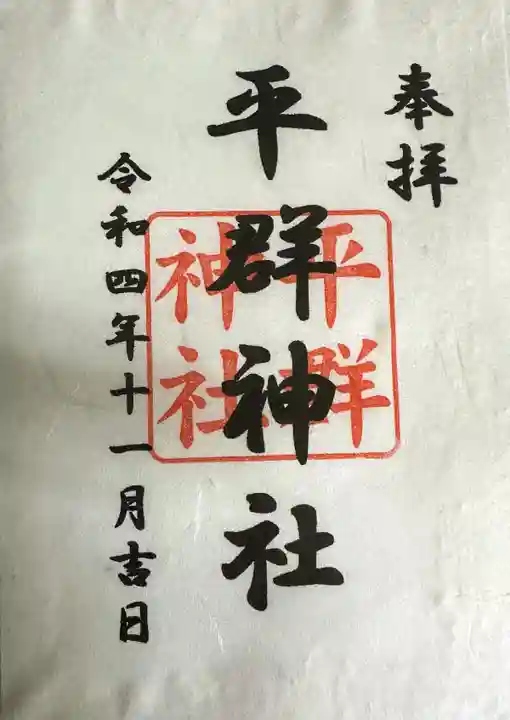 奉拝
平群神社
平群
神社
令和四年十一月吉日